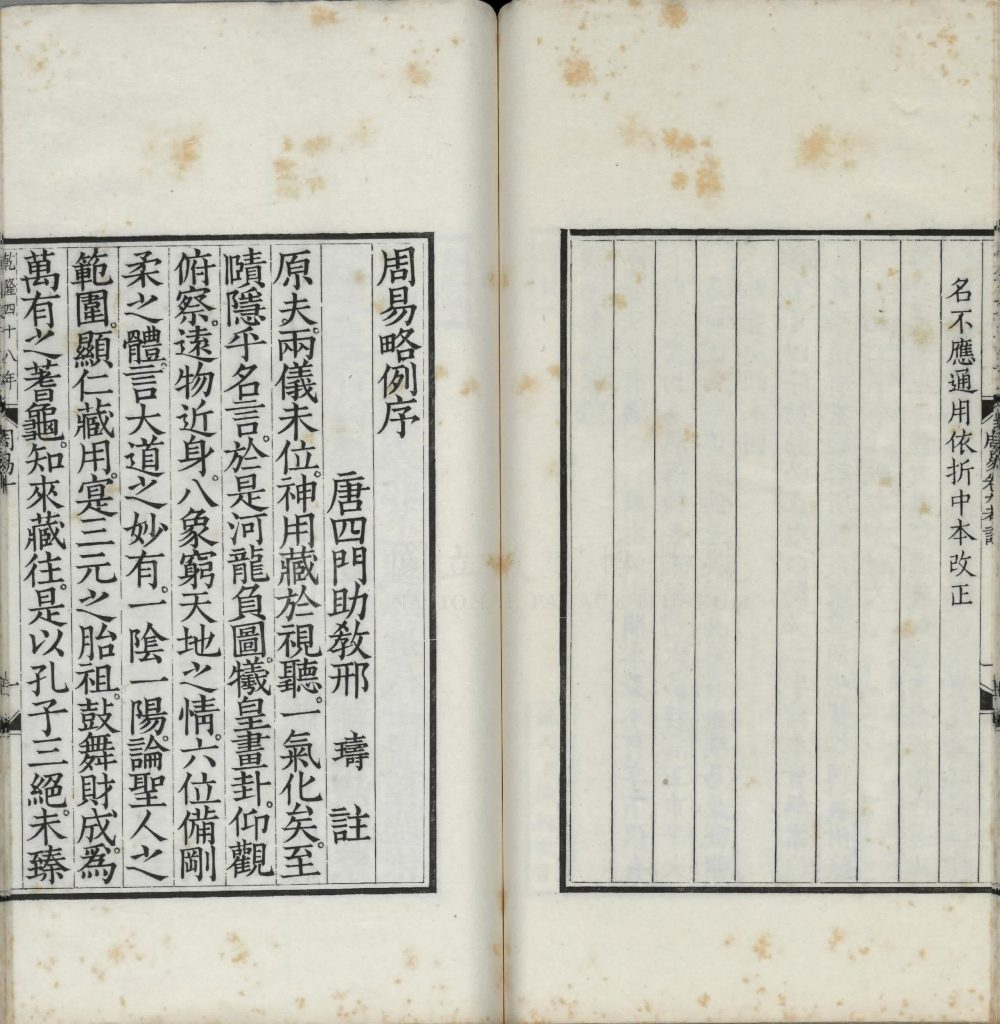 名不應通用依折中本改正
周易略例序
唐四門助教邢　璹　註
原夫兩儀未位。神用藏於視聽。一氣化矣。至
賾隱乎名言。於是河龍負圖。犧皇畫卦。仰觀
俯察。遠物近身。八象窮天地之情。六位備剛
柔之體。言大道之妙有。一陰一陽。論聖人之
範圍。顯仁藏用。寔三元之胎祖。鼓舞財成。爲
萬有之蓍龜。知來藏往。是以孔子三絕。未臻
乾隆四十八年
NATIONAL PALACE MUSEUM